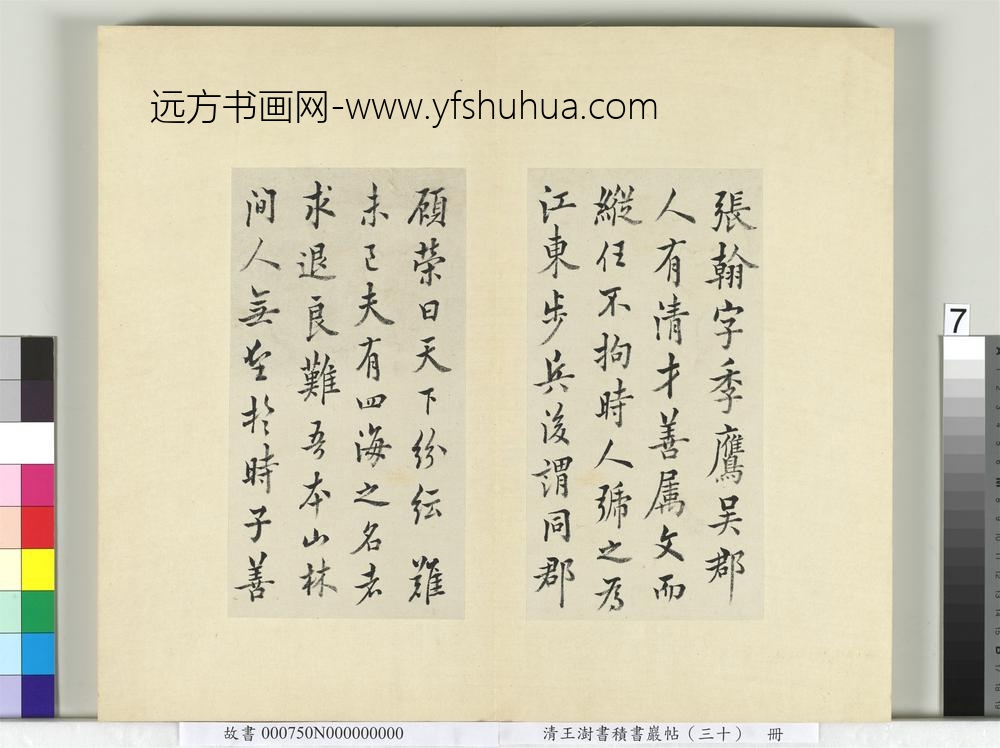 远方书画网-www.yfshuhua.com
張翰字季鷹吳郡
人有清才善属文而
縱任不拘時人號之為
江東步兵後謂同郡
顧榮曰天下紛紜難
未已夫有四海之名者
求退良難吾本山林
間人無望於時子善
7
故書 000750N000000000
清王澍書積書巖帖（三十） 冊